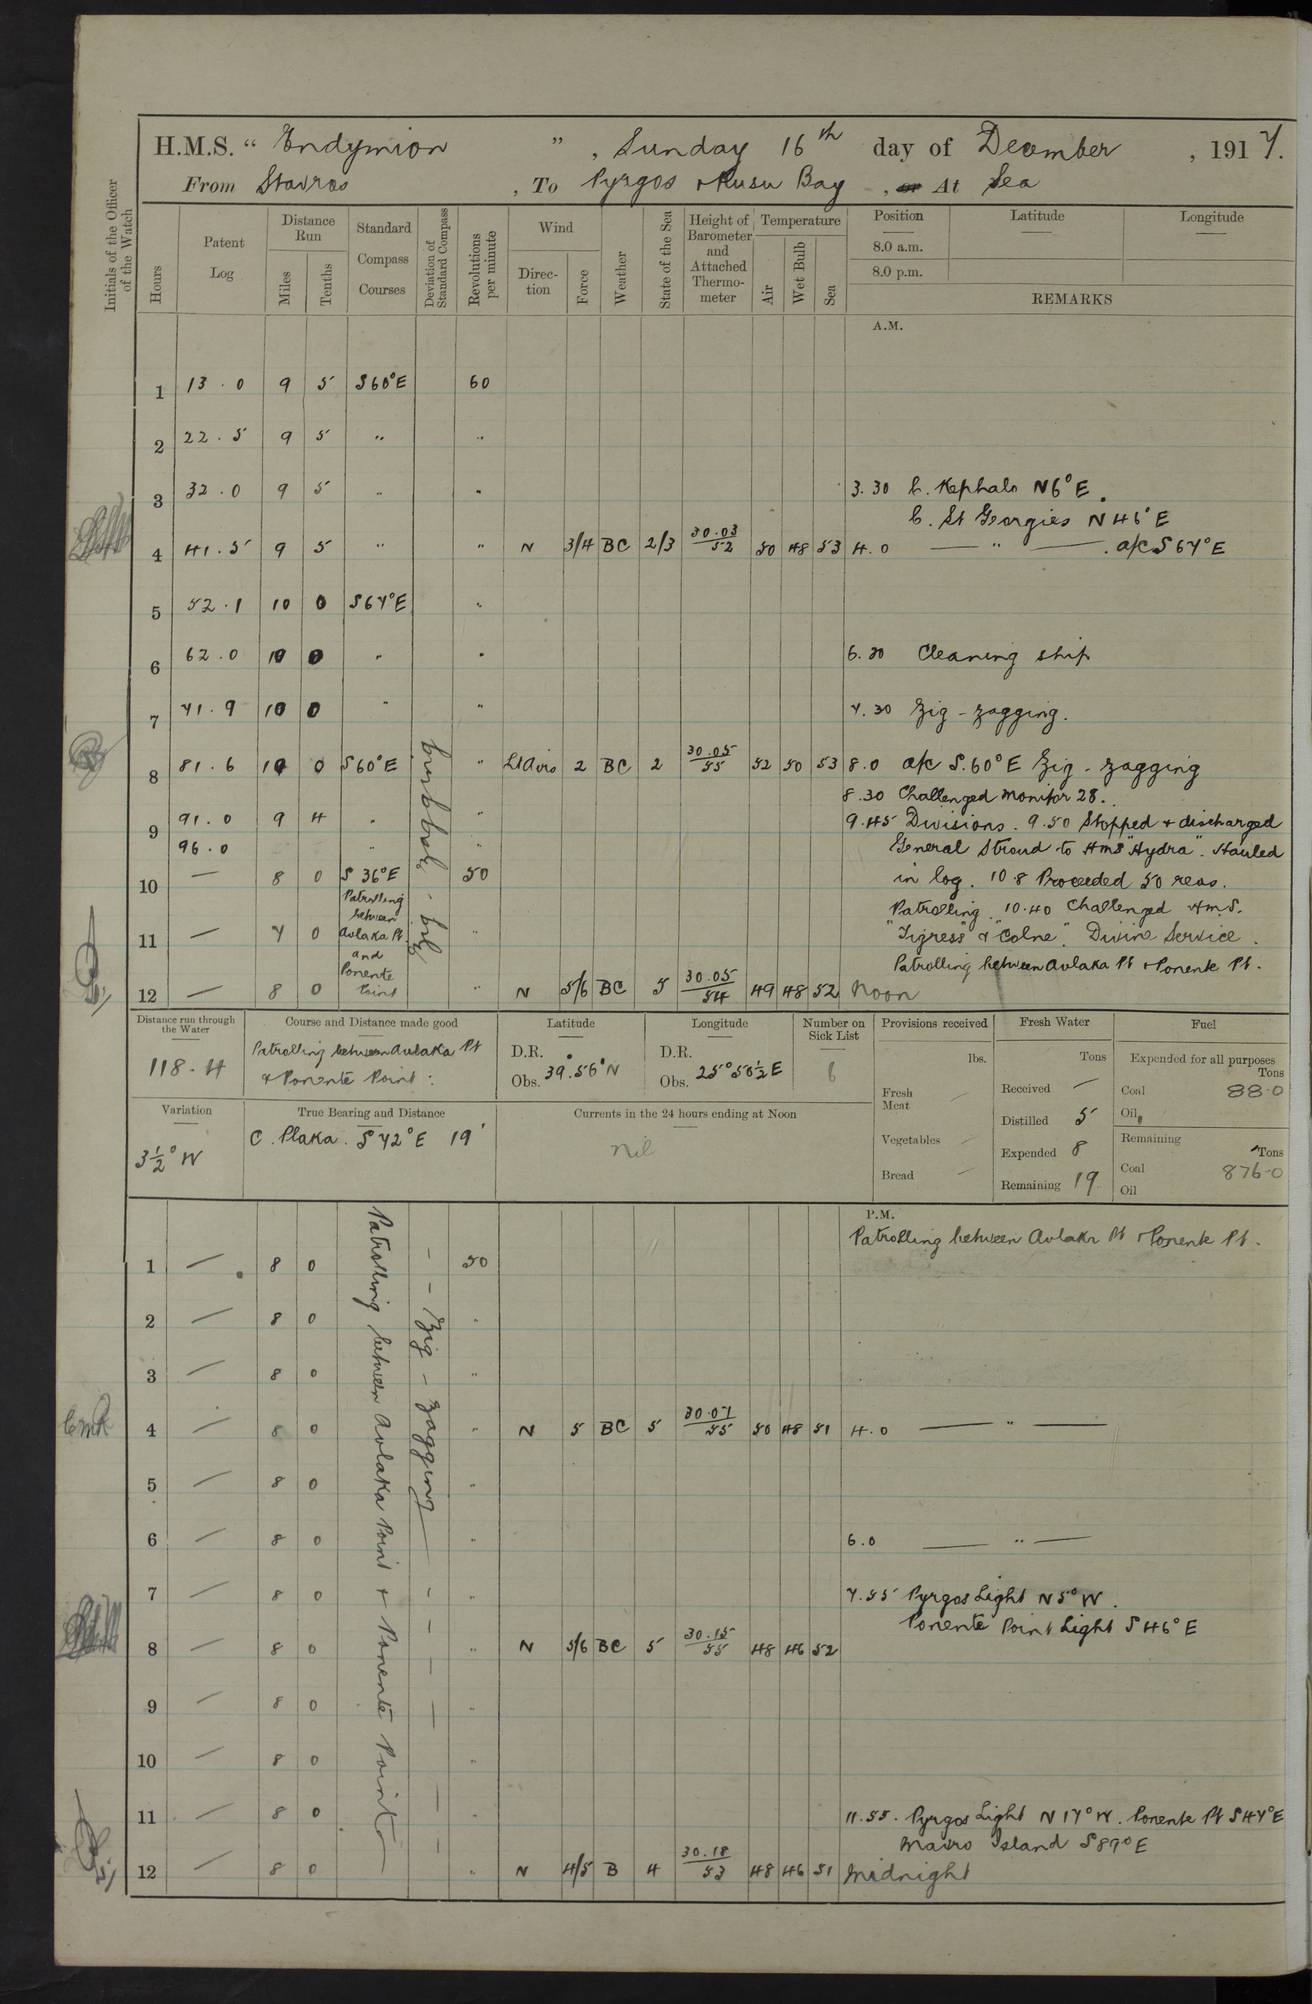 H.M.S. “ Endymion ”, Sunday 16th day of December, 1917.
From Stavros, To Pyrgos + Kusu Bay, or At Sea
Initials of the Officer of the Watch
Hours
Patent Log
Distance Run
Miles
Tenths
Standard Compass Courses
Deviation of Standard Compass
Revolutions per minute
Wind
Direction
Force
Weather
State of the Sea
Height of Barometer and Attached Thermometer
Temperature
Air
Wet Bulb
Sea
Position
Latitude
Longitude
8.0 a.m.
8.0 p.m.
REMARKS
A.M.
1 13.0 9 5 S60°E 60
2 22.5 9 5 " "
3 32.0 9 5 " " 3.30 C. Kephalo N6°E.
C. St Georgies N46°E
4 41.5 9 5 " " N 3/4 BC 2/3 30.03/52 50 48 53 4.0 — " — . a/c S67°E
5 52.1 10 0 S67°E "
6 62.0 10 0 " " 6.30 Cleaning ship
7 71.9 10 0 " " 7.30 Zig-zagging.
8 81.6 10 0 S60°E " Lt Airs 2 BC 2 30.05/55 52 50 53 8.0 a/c S.60°E Zig-zagging
8.30 Challenged Monitor 28.
9 91.0 9 4 " " 9.45 Divisions. 9.50 Stopped + discharged
96.0 " " General Stroud to HMS "Hydra". Hauled
10 — 8 0 S 36°E 50 in log. 10.8 Proceeded 50 revs.
Patrolling between Avlaka Pt and Ponente Point
Patrolling. 10.40 Challenged H.M.S.
11 — 7 0 " "Tigress" & "Colne". Divine Service.
Patrolling between Avlaka Pt + Ponente Pt.
12 — 8 0 " N 5/6 BC 5 30.05/54 49 48 52 Noon
Zig-zagging
Distance run through the Water
118.4
Course and Distance made good
Patrolling between Avlaka Pt
& Ponente Point:
Latitude
D.R.
Obs. 39°.56'N
Longitude
D.R.
Obs. 25°50½E
Number on Sick List
6
Provisions received
lbs.
Fresh Meat —
Vegetables —
Bread —
Fresh Water
Tons
Received —
Distilled 5
Expended 8
Remaining 19
Fuel
Expended for all purposes
Tons
Coal 88.0
Oil
Remaining
Tons
Coal 876.0
Oil
Variation
3½°W
True Bearing and Distance
C. Plaka. S72°E 19'
Currents in the 24 hours ending at Noon
nil
P.M.
Patrolling between Avlaka Pt + Ponente Pt.
1 — 8 0 50
2 — 8 0 "
3 — 8 0 "
4 — 8 0 " N 5 BC 5 30.07/55 50 48 51 4.0 — " —
5 — 8 0 "
6 — 8 0 " 6.0 — " —
7 — 8 0 " 7.55 Pyrgos Light N5°W.
Ponente Point Light S46°E
8 — 8 0 " N 5/6 BC 5 30.15/55 48 46 52
9 — 8 0 "
10 — 8 0 "
11 — 8 0 " 11.55. Pyrgos Light N17°W. Ponente Pt S47°E
Mavro Island S89°E
12 — 8 0 " N 4/5 B 4 30.18/53 48 46 51 Midnight
Patrolling between Avlaka Point + Ponente Point
— — Zig-zagging —